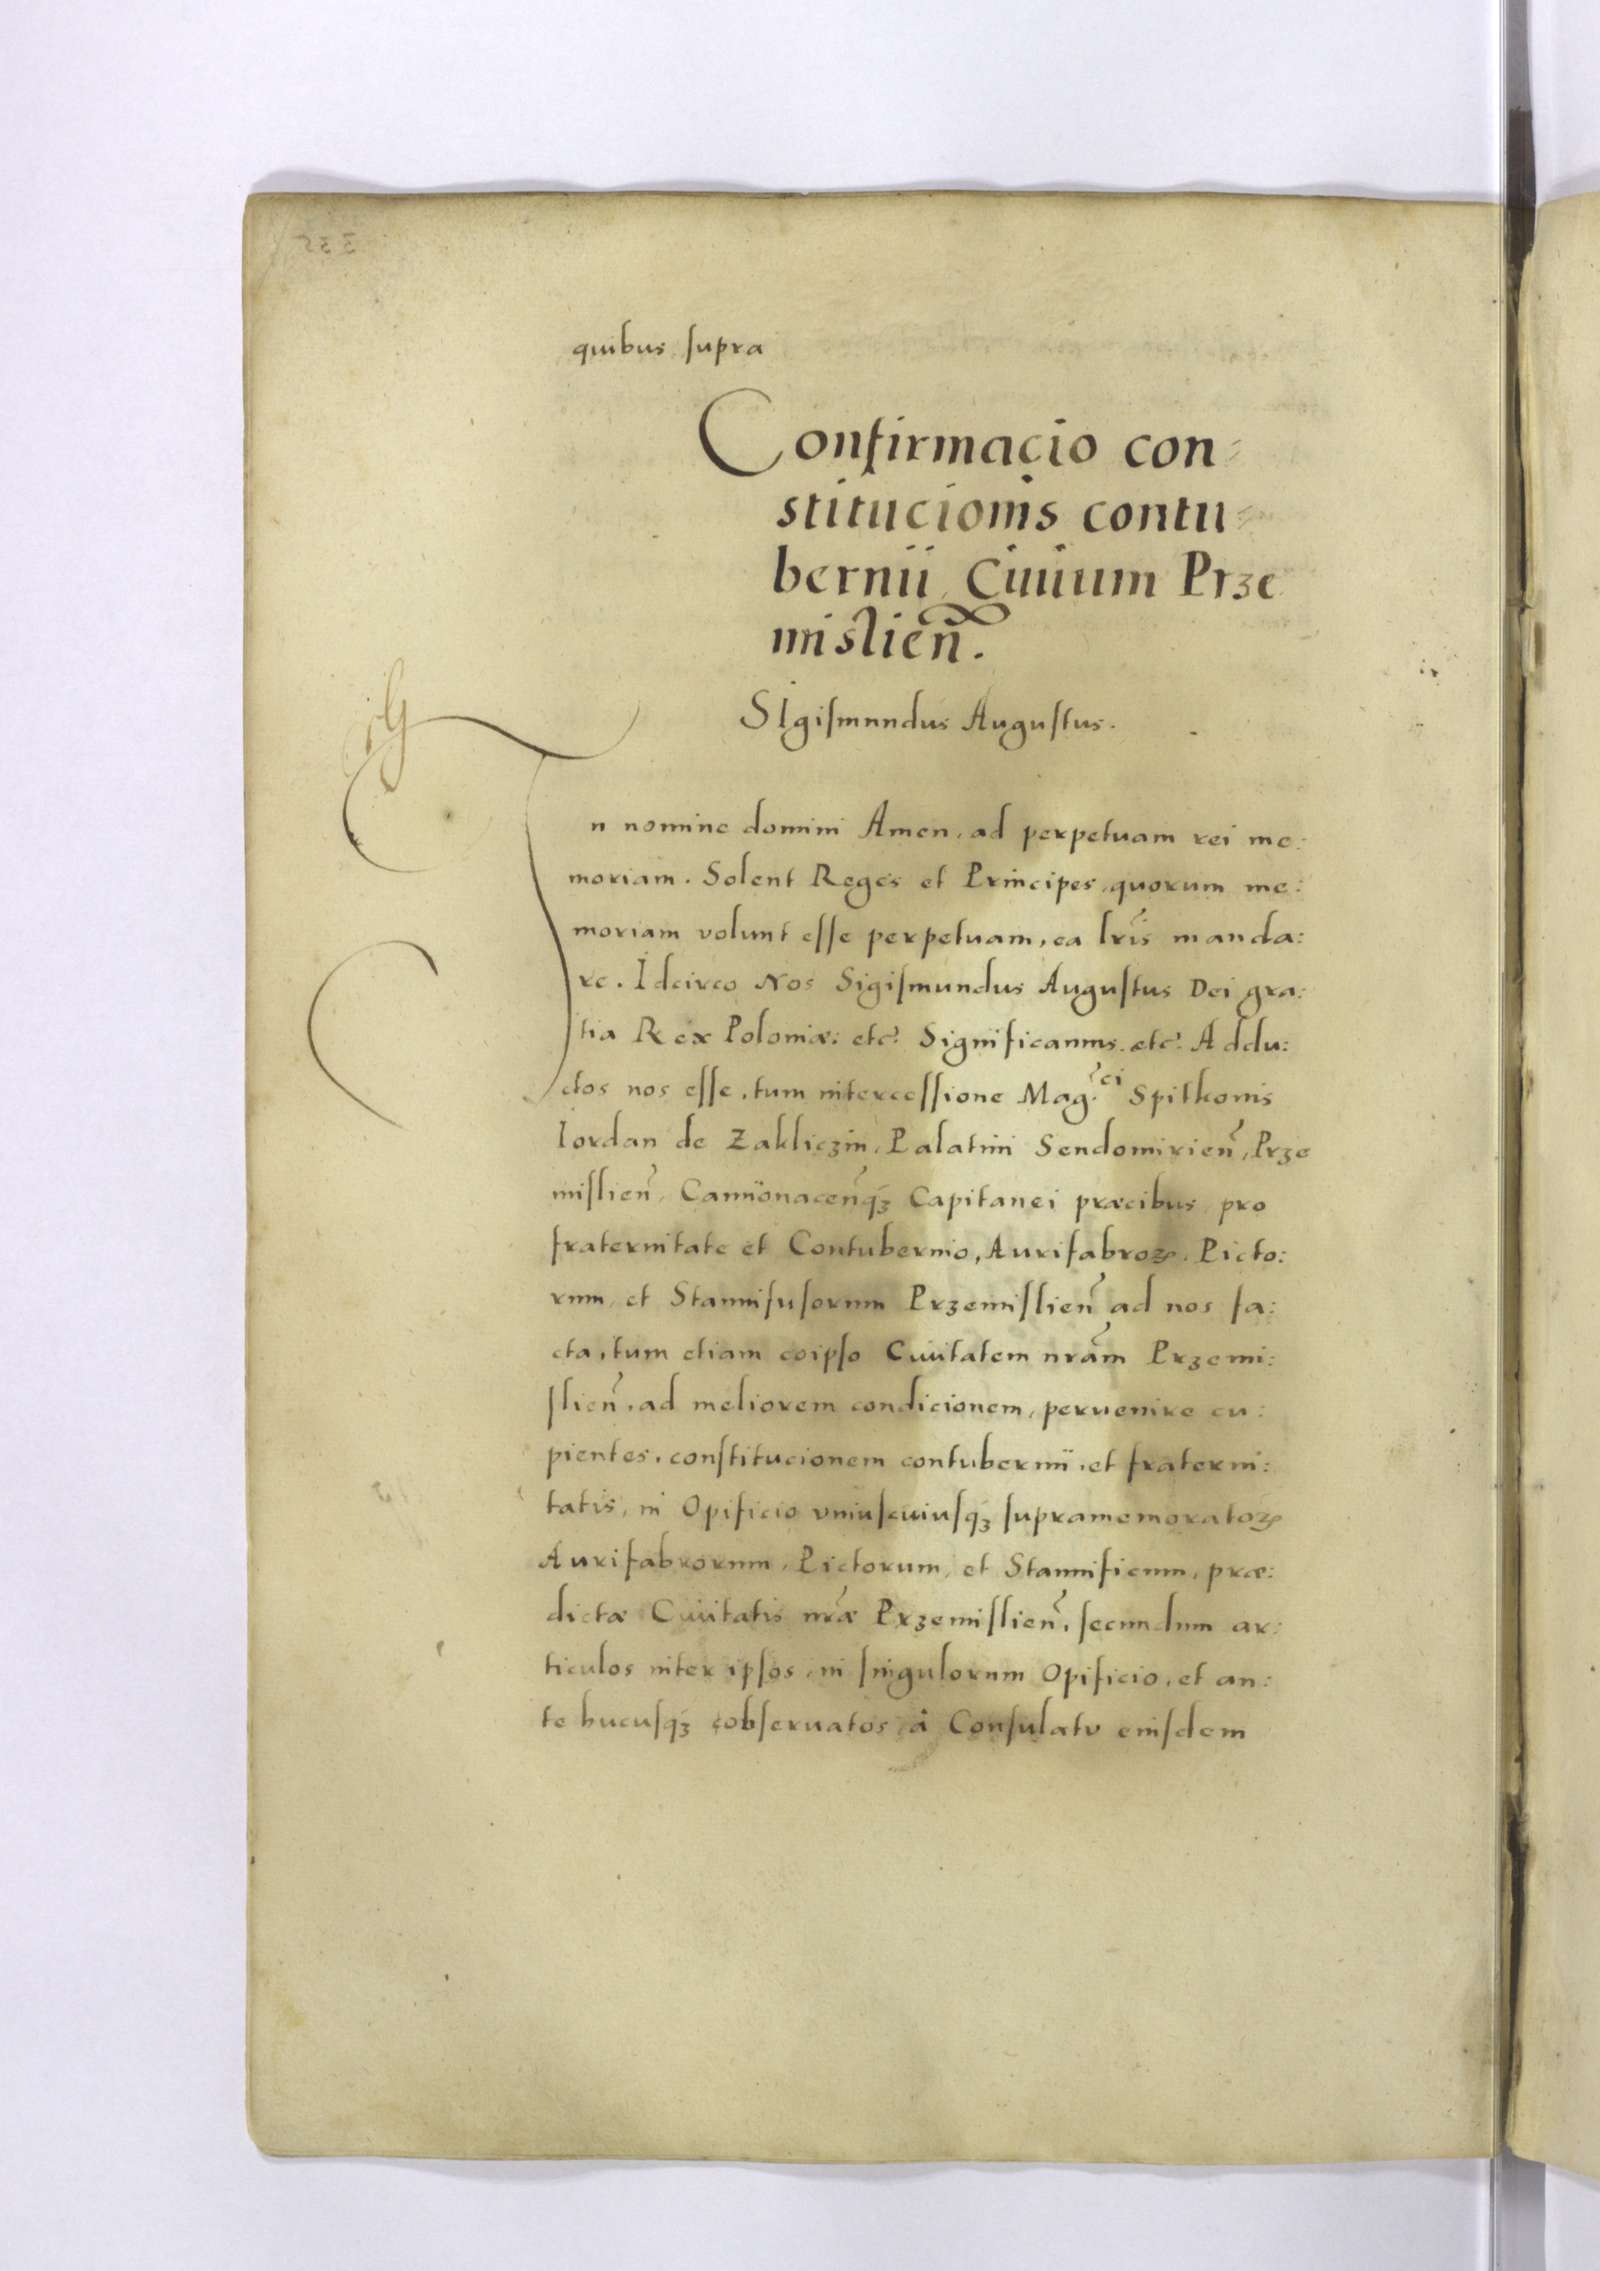 quibus supra
Confirmacio con=
stitucionis contu=
bernii, Ciuium Prze
mislien̄.
SIgiſmundus Auguſtus.
In nomine domini Amen, ad perpetuam rei me:
moriam. Solent Reges et Principes, quorum me:
moriam volunt eſſe perpetuam, ea lr̄is manda:
re. Idcirco Nos Sigiſmundus Auguſtus Dei gra:
tia Rex Poloniæ: etc̄ Significamus. etc̄. Addu:
ctos nos eſſe, tum interceſſione Mag.ci Spitkonis
Iordan de Zakliczin, Palatini Sendomirien̄, Prze
miſlien̄, Camionacen̄qꝫ Capitanei præcibus, pro
fraternitate et Contubernio, Aurifabroꝝ, Picto:
rum, et Stannifuſorum Przemiſlien̄ ad nos fa:
cta, tum etiam eoipſo Ciuitatem nr̄am Przemi:
ſlien̄, ad meliorem condicionem, peruenire cu:
pientes, conſtitucionem contubernii, et fraterni:
tatis, in Opificio vniuſcuiuſqꝫ ſupramemoratoꝝ
Aurifabrorum, Pictorum, et Stannificum, præ:
dictæ Ciuitatis nr̄æ Przemiſlien̄, ſecundum ar:
ticulos inter ipſos, in ſingulorum Opificio, et an:
te hucuſqꝫ obſeruatos, à Conſulatu eiuſdem